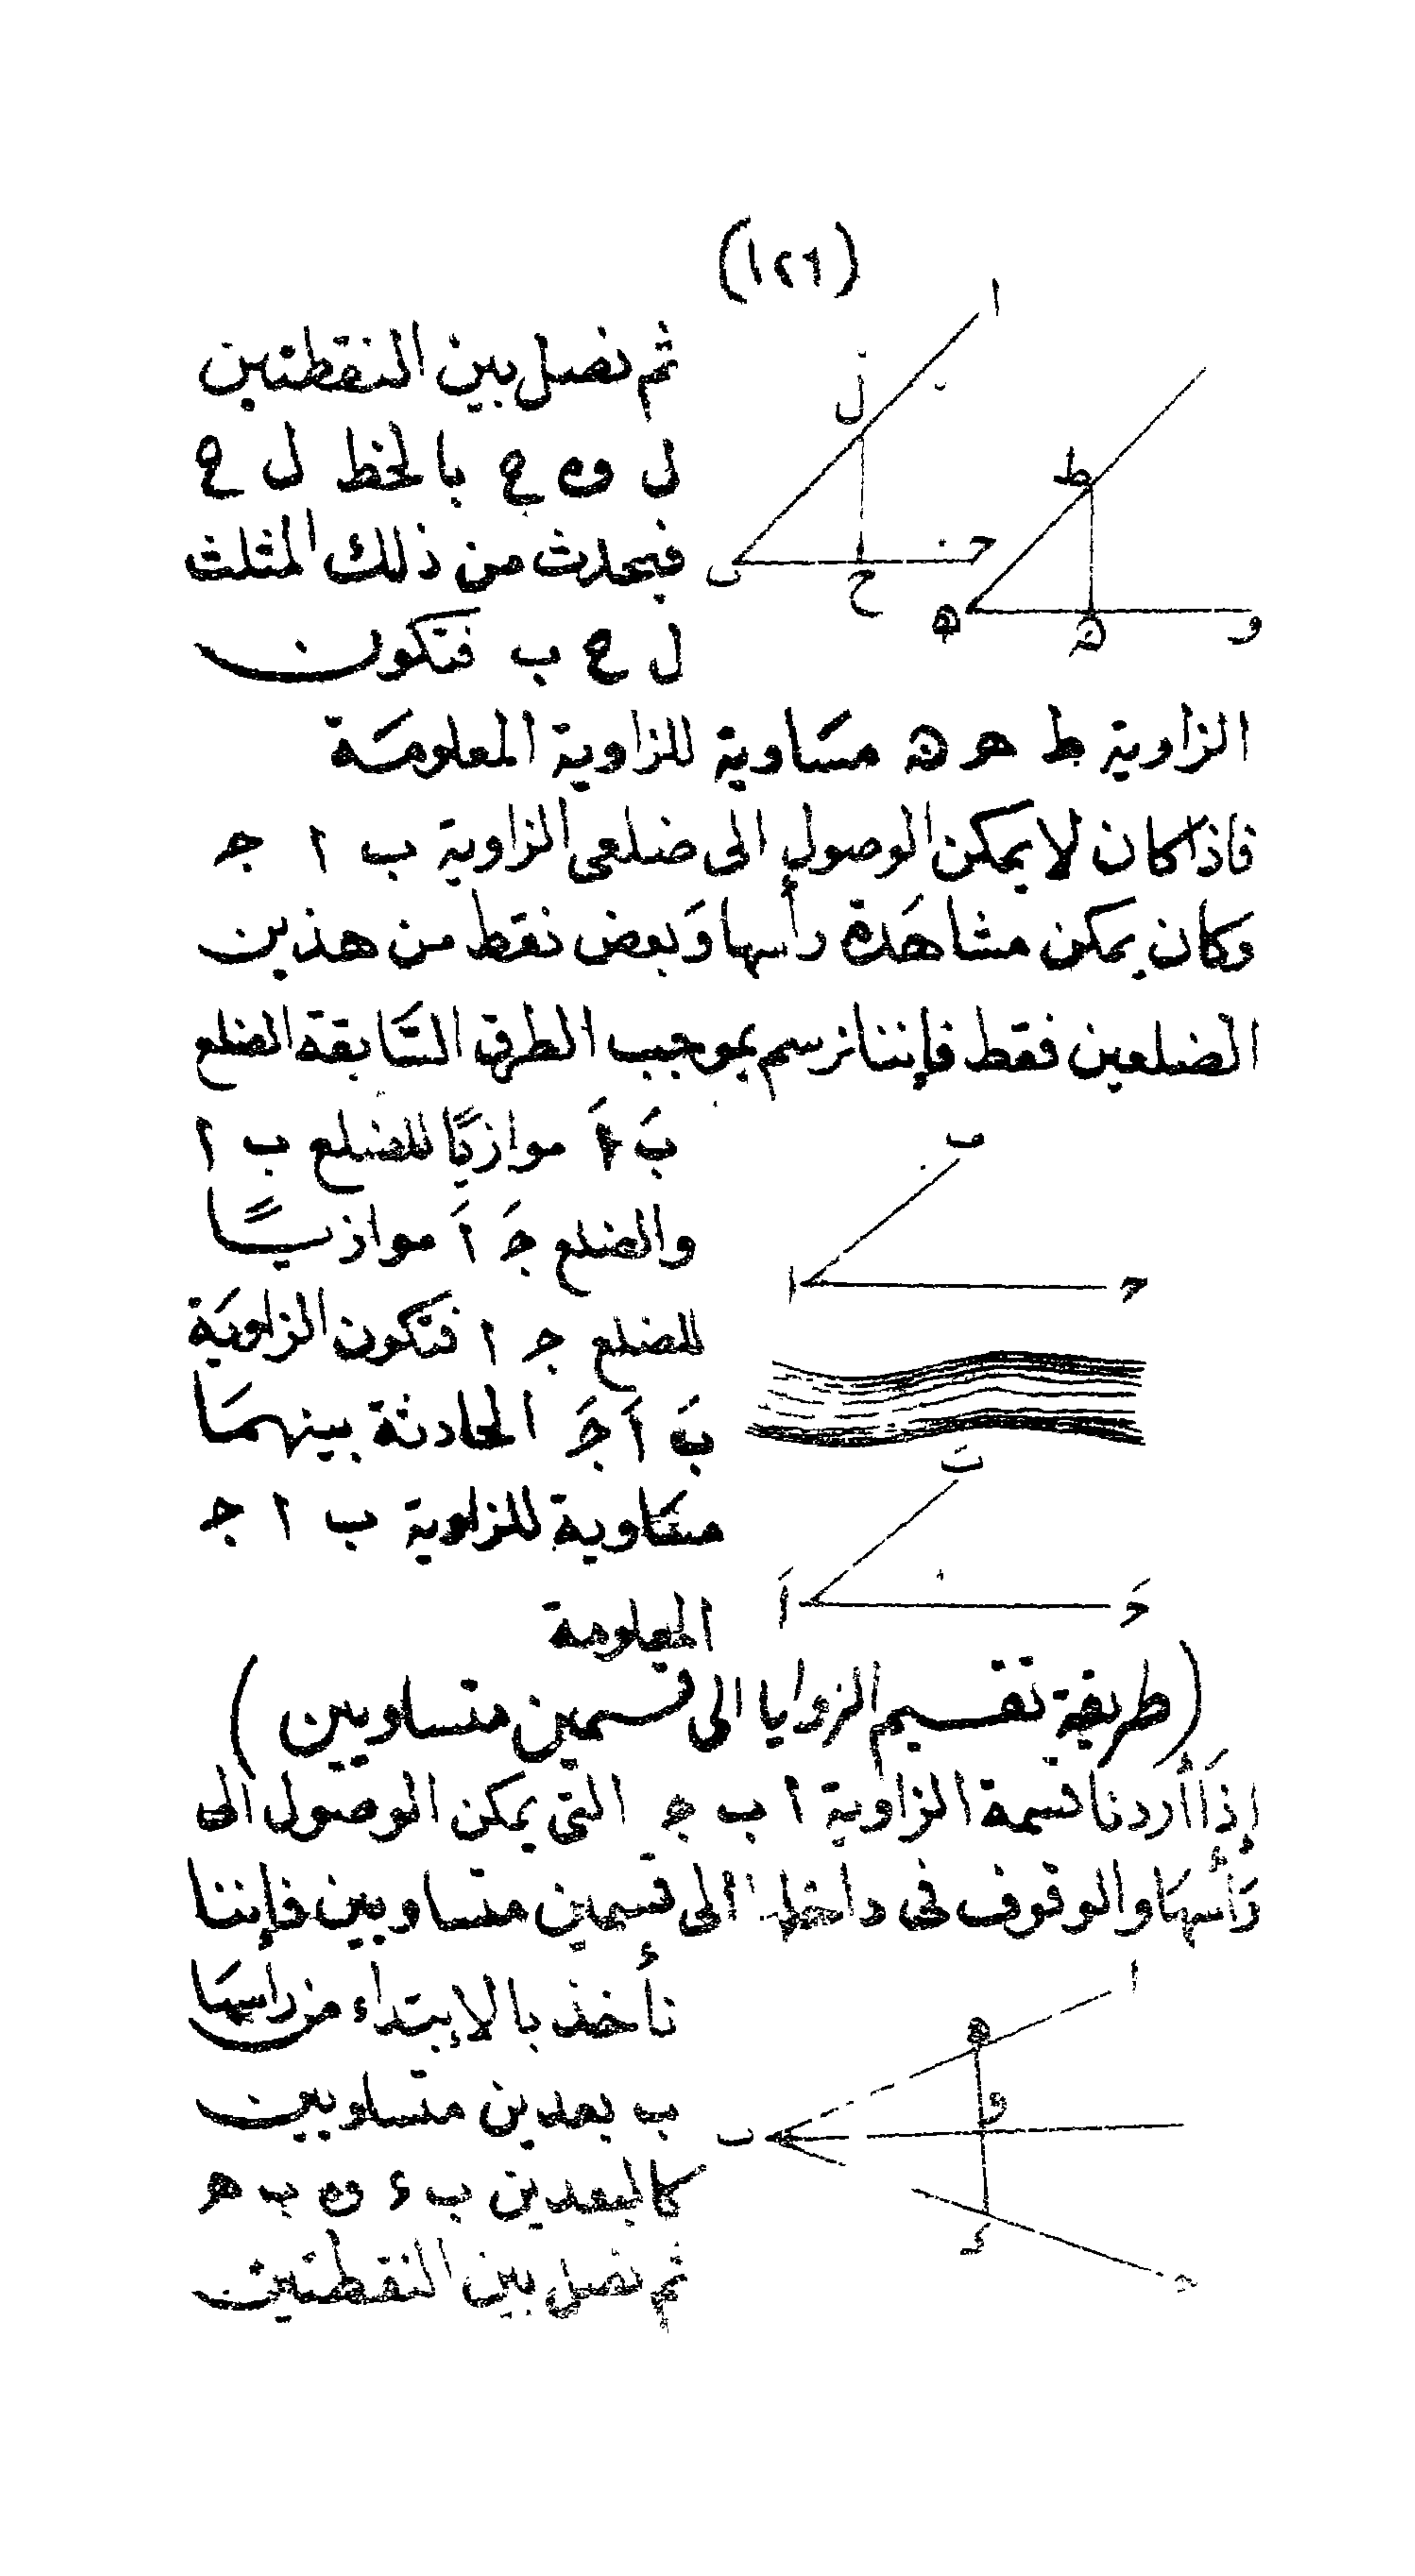 (١٢٦)
ثم نصل بين النقطتين
ل و ح بالخط ل ح
فيحدث من ذلك المثلث
ل ح ب فتكون
ا
ل
ب
ح
ج
ط
ه
و
الزاوية ط ه ھ مسَاوية للزاوية المعلومَة
فاذا كان لا يمكن الوصول الى ضلعى الزاوية ب ا ج
وَكان يمكن مشاهَدة رأسها وَبعض نقط من هذين
الضلعين فقط فإننا نرسم بموجب الطرق السَّابقة الضلع
بَ اَ موازيًا للضلع ب ا
والضلع جَ اَ موازيًا
للضلع ج ا فتكون الزاويَة
بَ اَ جَ الحادثة بينهمَا
مسَاوية للزاوية ب ا ج
المعلومة
ب
ا
ج
بَ
اَ
جَ
(طريقة تقسيم الزوايا الى قسمين متساويين)
إذَا أردنا قسمة الزاوية ا ب ج التى يمكن الوصول الى
رَأسهَا والوقوف فى داخلها الى قسمين متساويين فإننا
نأخذ بالإبتداء من رأسهَا
ب بعدين متساويين
كالبعدين ب ء و ب ه
ثم نصل بين النقطتين
ا
ه
و
ب
ء
ج